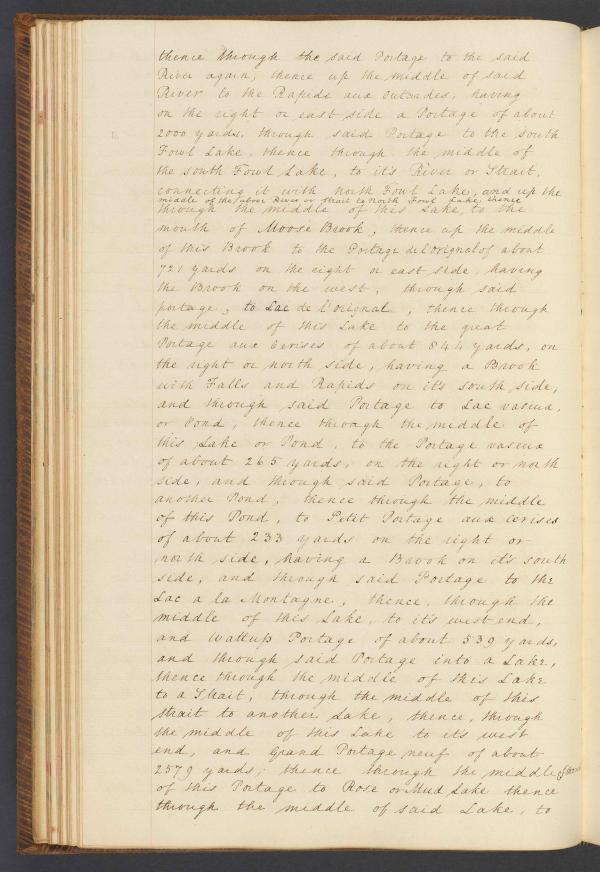 thence through the said Portage to the said
River again; thence up the middle of said
River to the Rapids aux outrades, having
on the right or east side a Portage of about
2000 yards, through said Portage to the south
Fowl Lake, thence through the middle of
the south Fowl Lake, to it's River or Strait,
connecting it with north Fowl Lake, and up the
middle of the above River or strait to North Fowl Lake; thence
through the middle of this Lake, to the
mouth of Moose Brook; thence up the middle
of this Brook to the Portage de l'orignal of about
721 yards on the right or east side, having
the Brook on the west, through said
portage; to Lac de l'orignal, thence through
the middle of this Lake to the great
Portage aux Cerises of about 844 yards, on
the right or north side, having a Brook
with Falls and Rapids on it's south side,
and through said Portage to Lac vaseux,
or Pond, thence through the middle of
this Lake or Pond, to the Portage vaseux
of about 265 yards, on the right or north
side, and through said Portage, to
another Pond, thence through the middle
of this Pond, to Petit Portage aux Cerises
of about 233 yards on the right or
north side, having a Brook on it's south
side, and through said Portage to the
Lac a la Montagne, thence, through the
middle of this Lake, to it's west end,
and Wattup Portage of about 539 yards,
and through said Portage into a Lake,
thence through the middle of this Lake
to a Strait, through the middle of this
strait to another Lake, thence, through
the middle of this Lake to it's west
end, and Grand Portage neuf of about
2579 yards; thence through the middle
of this Portage to Rose or Mud Lake thence
through the middle of said Lake, to